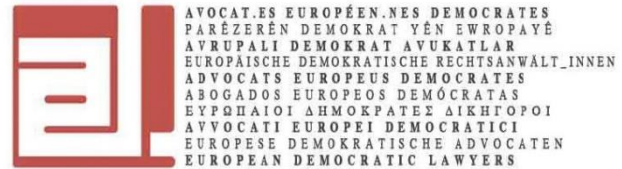 AVOCAT.ES EUROPÉEN.NES DEMOCRATES
PARÊZERÊN DEMOKRAT YÊN EWROPAYÊ
AVRUPALI DEMOKRAT AVUKATLAR
EUROPÄISCHE DEMOKRATISCHE RECHTSANWÄLT_INNEN
ADVOCATS EUROPEUS DEMOCRATES
ABOGADOS EUROPEOS DEMÓCRATAS
ΕΥΡΩΠΑΙΟΙ ΔΗΜΟΚΡΑΤΕΣ ΔΙΚΗΓΟΡΟΙ
AVVOCATI EUROPEI DEMOCRATICI
EUROPESE DEMOKRATISCHE ADVOCATEN
EUROPEAN DEMOCRATIC LAWYERS